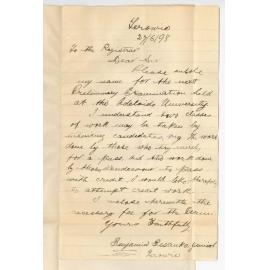 Terowie
27/6/98
To the Registrar
Dear Sir
Please enrol
my name for the next
Preliminary Examination held
at the Adelaide University
I understand two classes
of work may be taken by
intending candidates, eg the work
done by those who try merely
for a pass, and the work done
by those to pass
with credit. I would like therefore
to attempt credit work.
I inclose herewith the
necessary fee for the Exam
Yours Faithfully
Benjamin junior
Terowie